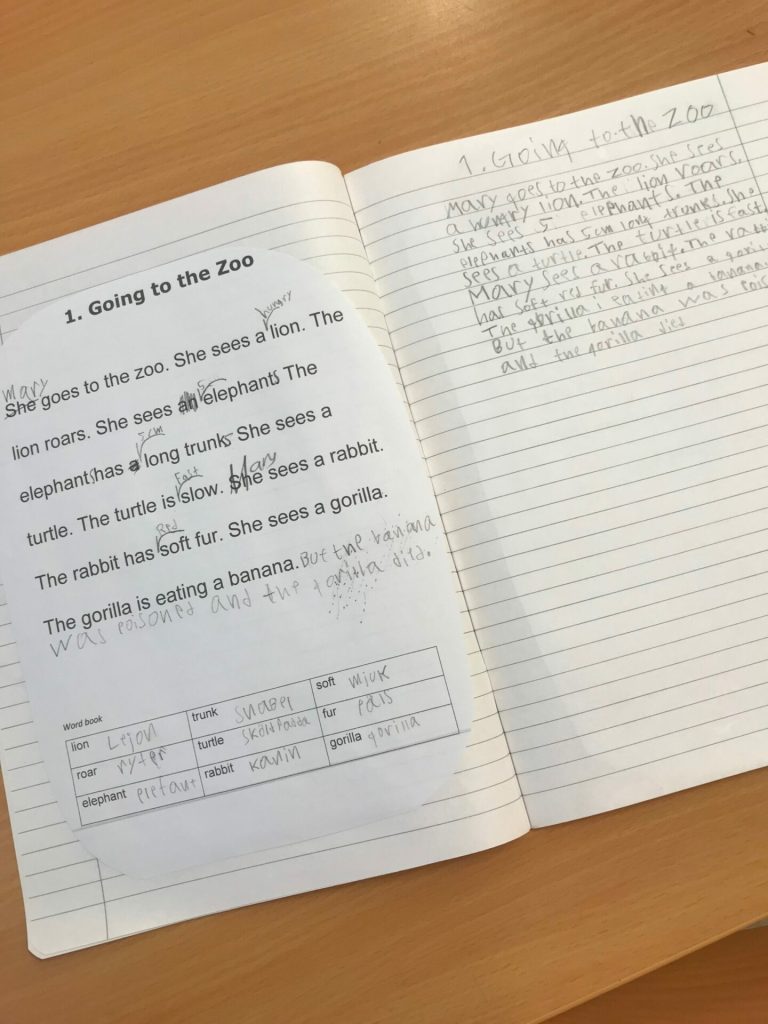 1. Going to the Zoo
hungry
mary
She goes to the zoo. She sees a lion. The
5
lion roars. She sees an elephants The
5 cm
elephants has a long trunks She sees a
Fast Mary
turtle. The turtle is slow. She sees a rabbit.
Red
The rabbit has soft fur. She sees a gorilla.
The gorilla is eating a banana. But the banana
was poisoned and the gorilla died.
Word book
lion Lejon trunk snabel soft mjuk
roar ryter turtle sköldpadda fur päls
elephant elefant rabbit kanin gorilla gorilla
1. Going to the Zoo
Mary goes to the zoo. She sees
a hungry lion. The lion roars.
She sees 5 elephants. The
elephants has 5cm long trunks. She
sees a turtle. The turtle is fast.
Mary sees a rabbit. The rabbit
has soft red fur. She sees a gorilla
The gorilla is eating a banana.
But the banana was
and the gorilla died